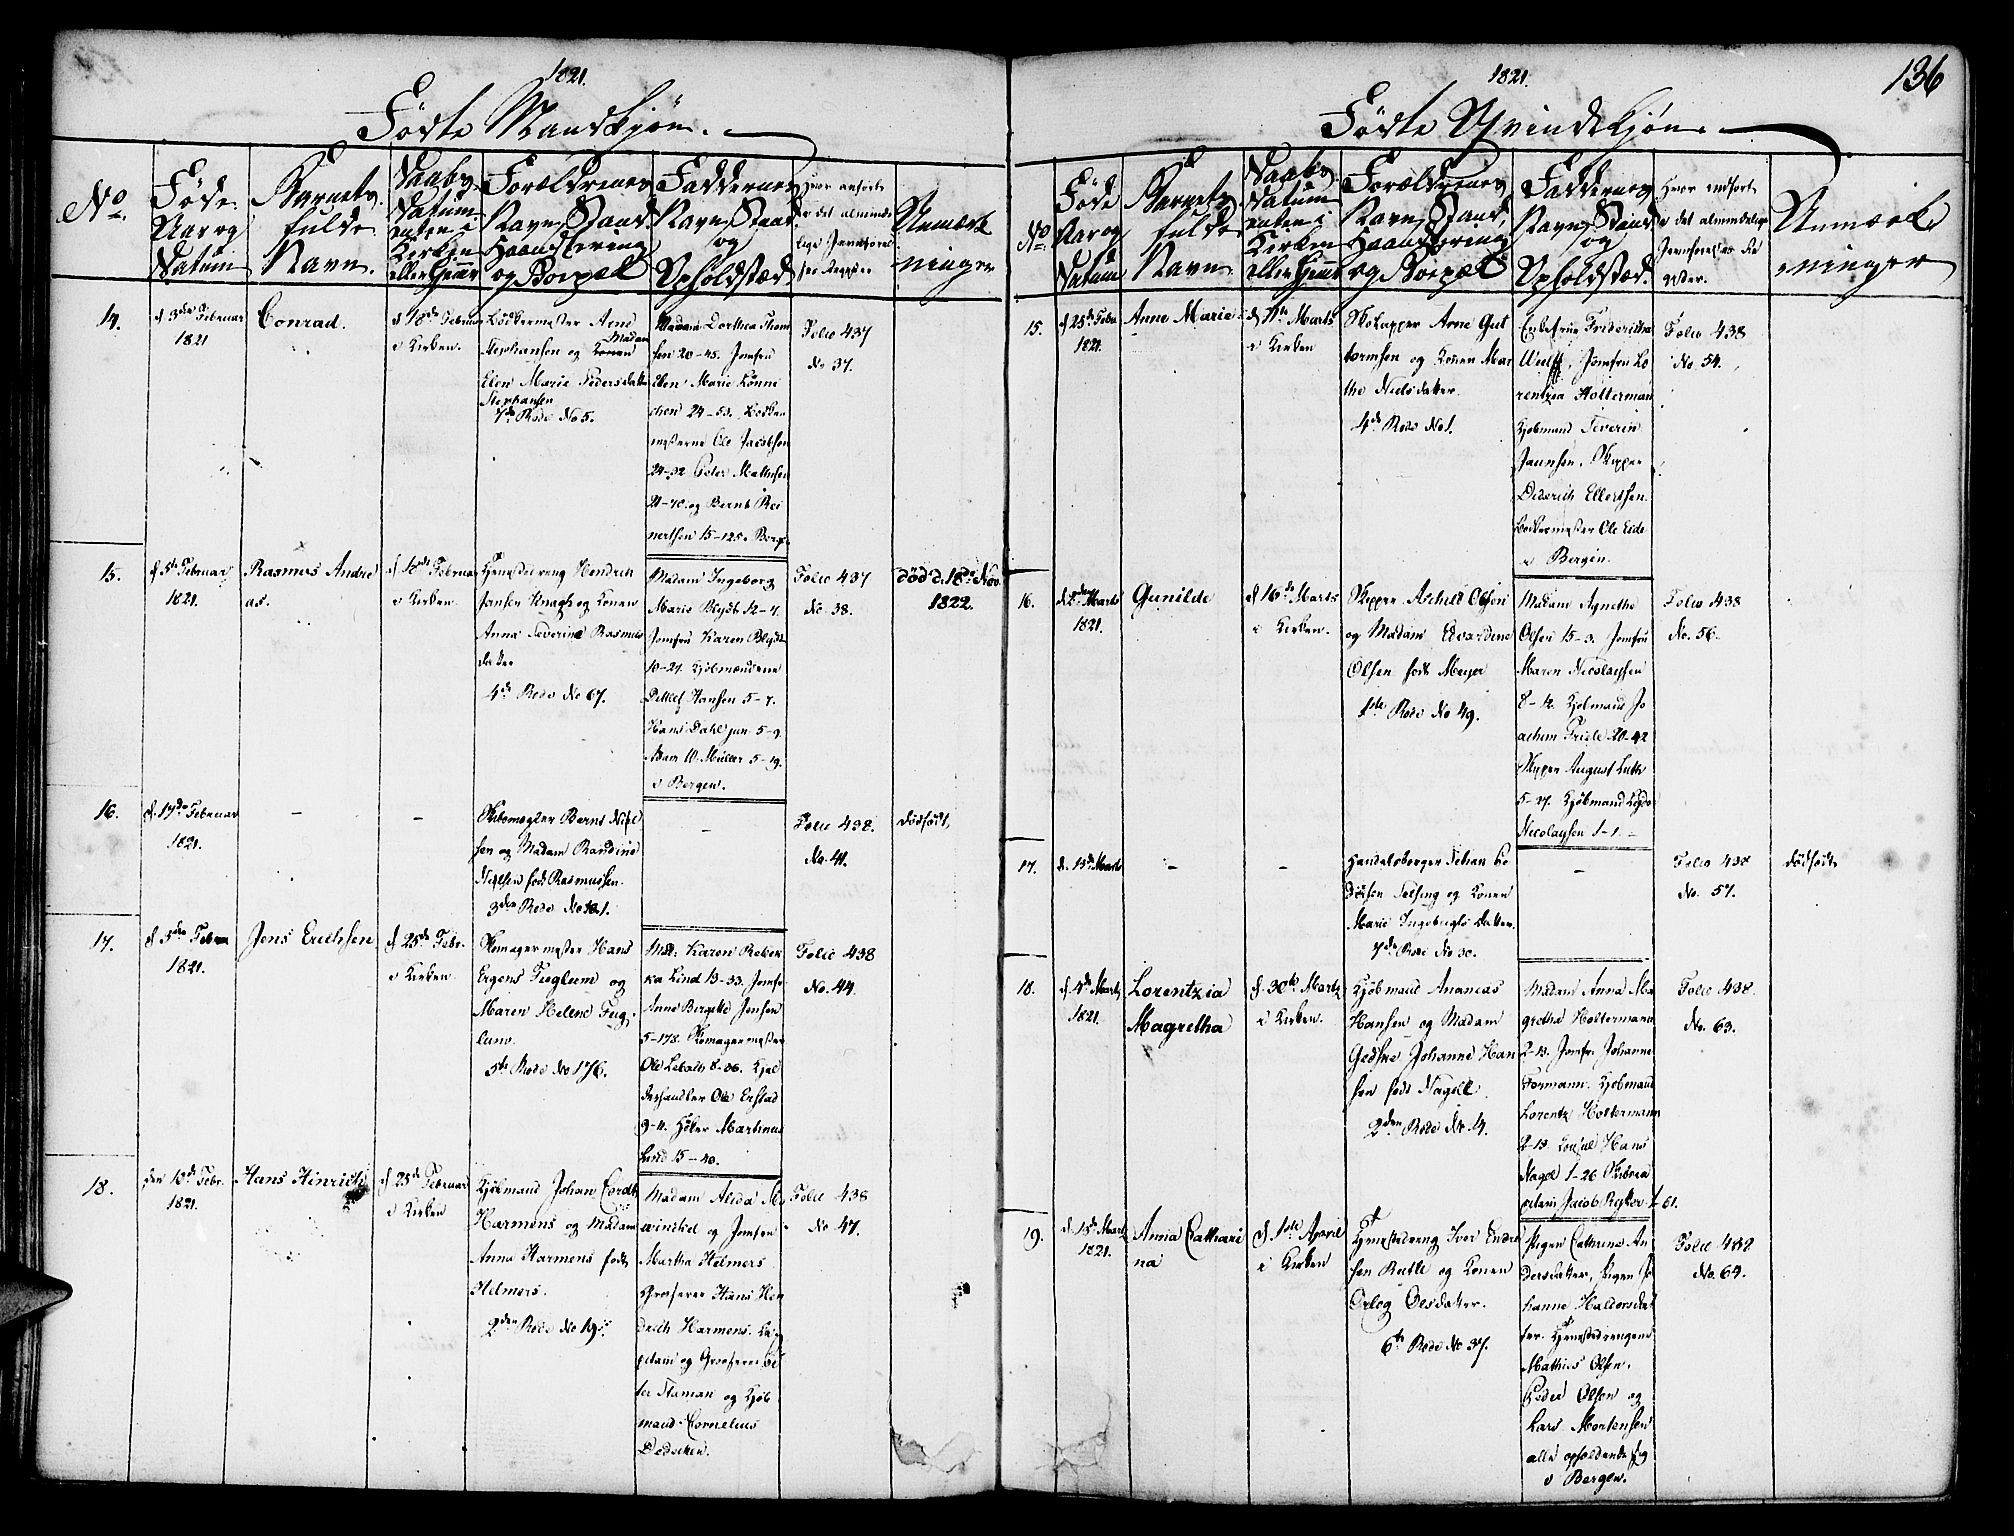 1821.
Fødte Mandkjøn.
No
Føde
Aar og
Datum
Barnets
fulde
Navn.
Daabs
Datum
enten i
Kirken
eller hjem̅e
Forældrenes
Navn, Stand,
Haandtering
og Boepæl
Faddernes
Navn, Stand
og
Opholdsted
Hvor anført
i det alminde
lige Jevnføre
lses Register
Anmærk
ninger
14.
d 3die Februar
1821
Conrad.
d 18de Februar
i Kirken.
Bødkermester Arne
Stephansen og Madam
Elen Marie Pedersdatter
Stephansen
7de Rode No 5.
Madam Dorthea Thom
sen 20-45. Jomfru
Elen Marie Kønni
chen 24-53. Bødker
mesterne Ole Jacobsen
24-32 Peder Mathisen
21-70. og Bernt Rei
nertsen 15-125.
Folio 437
No 37.
15.
d 5te Februar
1821.
Rasmus Andre
as.
d 18de Februar
i Kirken
Hendrich
Jansen Knagh og Konen
Anna Severine Rasmus
datter
4de Rode No 67.
Madam Ingeborg
Marie Blydt 12-7.
Jomfru Karen Blydt
10-27. Kjøbmændene
Ditlef Hansen 5-7.
Hans Dahl jun 5-9.
Adam W. Müller 5-19.
i Bergen.
Folio 437
No. 38.
død d. 18de Nov.
1822.
16.
d. 17de Februar
1821.
-
-
Skibsmægler Bernt Niel
sen og Madam Randine
Nielsen født Rasmussen.
-
Folio 438.
No. 41.
dødfødt
17.
d 3die Febru
1821.
Jens Erichsen
d 25de Febr.
i Kirken
Skomagermester Hans
Ergens Fuglum og
Maren Helene Fug
lum.
5te Rode No 176.
Mad: Karen Rebek
ka Lind 13-33. Jomfr
Anne Bergitte Jensen
5-178. Skomagermester
8-06.
Ole Erstad
9-11. Høker Martinus
Lind 15-40.
Folio 438
No. 44.
18.
den 10de Febr.
1821.
Hans Hinrich
d 25de Februar
i Kirken
Kjøbmand Johan Cordt
Harmens og Madam
Anna Harmens født
Helmers.
2den Rode No 19.
Madam Alida
og Jomfru
Martha Helmers
Grosserer Hans Hen
drich Harmens. Ca
pitain og Grosserer Pe
ter Staman og Kjøb
mand Cornelius
Folio 438
No 47.
1821.
136
Fødte Qvindekjøn.
No
Føde
Aar og
Datum
Barnets
fulde
Navn.
Daabs
Datum
enten i
Kirken
eller hjem̅e
Forældrenes
Navn, Stand,
Haandtering
og Boepæl
Faddernes
Navn, Stand
og
Opholdsted.
Hvor indført
i det almindelige
Jevnførelses Re
gister.
Anmærk
ninger
15.
d 25de Febr
1821.
Anne Marie
d 11te Marts
i Kirken
Skokapper Arne Gut
tormsen og Konen Mar
the Nielsdatter.
4de Rode No 1.
Enkefrue Friderikke
Wulff, Jomfru Lo
rentzea Holterman
Kjøbmand Severin
Jannsen. Skipper
Diderich Ellertsen.
Bødkermester Ole Eide
i Bergen.
Folio 438
No. 54.
16.
d. 2den Marts
1821.
Gunilde
d 16de Marts
i Kirken.
Skipper Aschild Olsen
og Madam Edvardine
Olsen født Meyer
1ste Rode No 49.
Madam Agnethe
Olsen 15-3. Jomfru
Maren Nicolaysen
8-12. Kjøbmand Jo
achim Friele 20-42
Skipper August Luth
5-27. Kjøbmand
Nicolaysen 1-1.
Folio 438
No. 56.
17.
d. 13de Marts
-
-
Handelsborger Johan
og Konen
Marie Ingebrigts datter.
7de Rode No 30.
-
Folio 438
No. 57.
dødfødt
18.
d. 4de Marts
1821.
Lorentzia
Magretha
d. 30te Marts
i Kirken.
Kjøbmand Ananias
Hansen og Madam
Gedske Johanne Han
sen født Nagell.
2den Rode No. 14.
Madam Anna Ma
gretha Holtermann
2-13. Jomfr. Johanne
Formann. Kjøbmand
Lorentz Holtermann
2-13. Consul Hans
Nagel 1-26 Skibsca
pitain Jacob Rycker 1-61.
Folio 438.
No. 63.
19.
d. 18de Marts
1821.
Anna Cathari
na
d. 1ste April
i Kirken
Iver Endre
sen Rutle og Konen
Orlog Olsdatter.
6te Rode No 37.
Pigen Cathrina An
dersdatter, Pigen Jo
hanne Haldorsdat
ter.
Mathies Olsen,
Peder Olsen og
Lars Mortensen
alle opholdende sig
i Bergen.
Folio 438
No. 64.